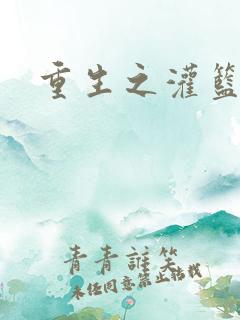 重生之灌籃
青青誰笑
未经同意禁止转载